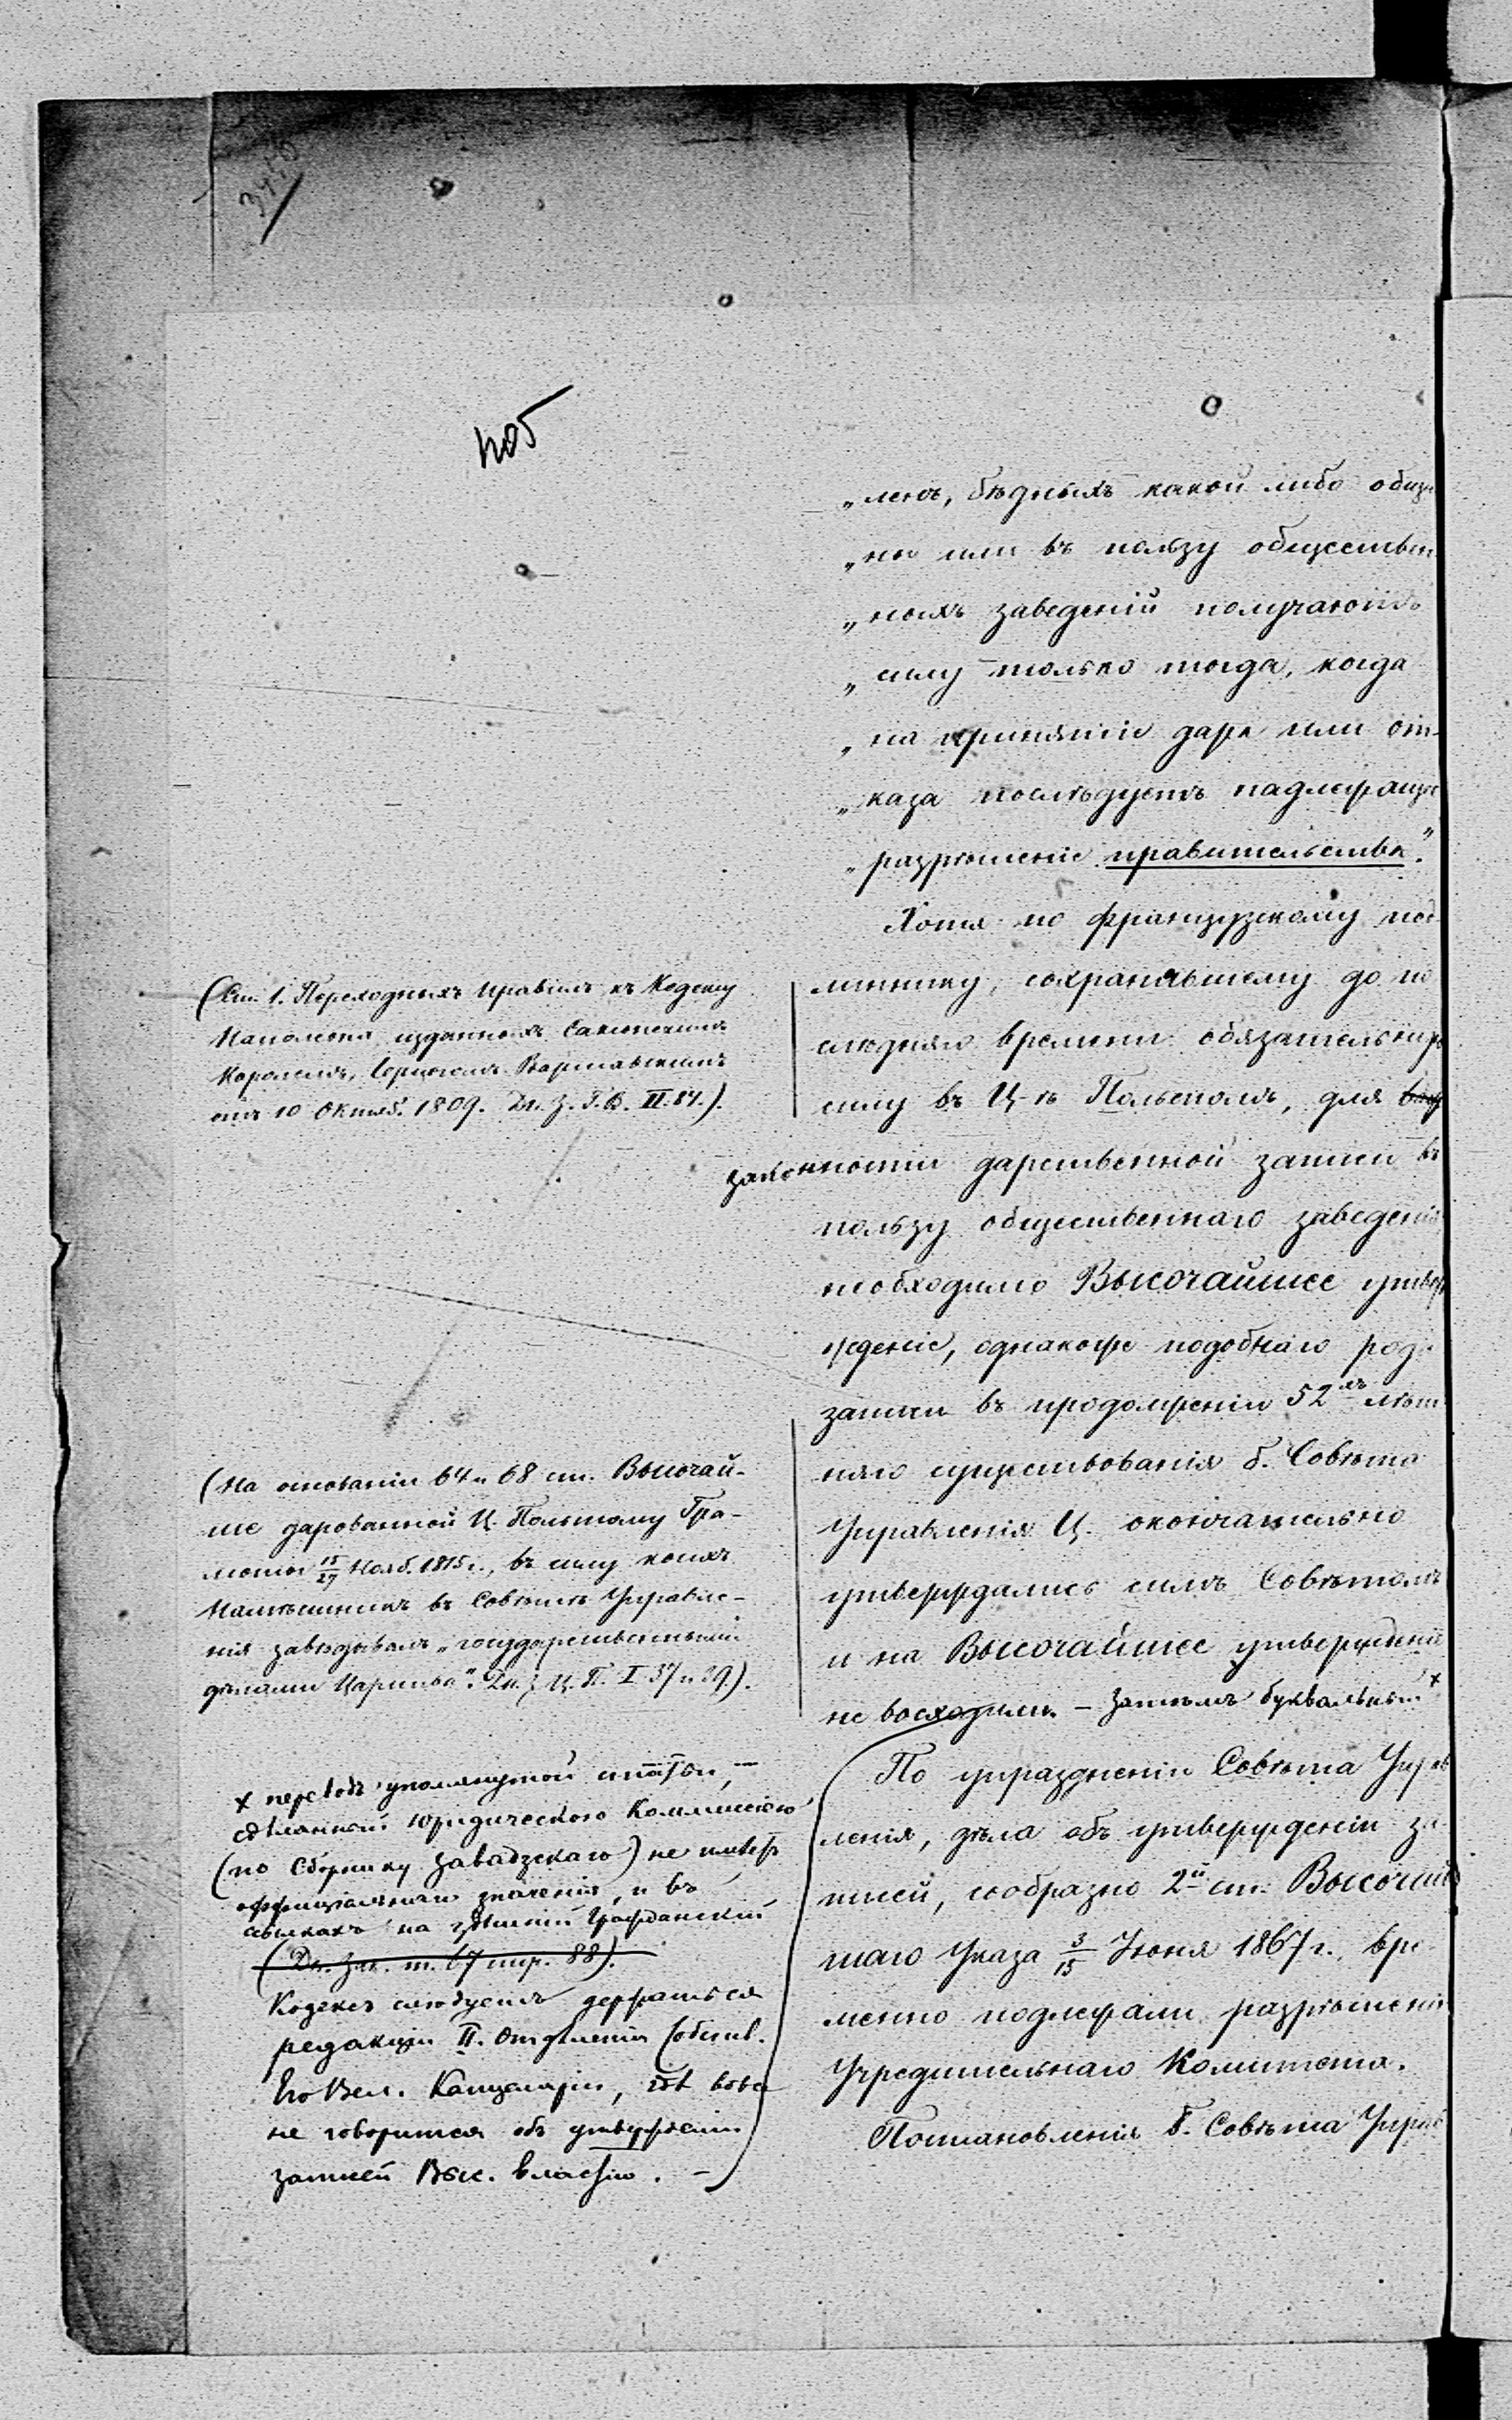 „ленъ, бѣдныхъ какой либо общи
„ны или въ пользу обществен
„ныхъ заведеній получаютъ
„силу только тогда, когда
„на принятіе дара или от-
„каза послѣдуетъ надлежаще
„разрѣшеніе правительства."
Хотя по французскому под
линнику, сохранявшему до по
слѣдняго времени обязательную
силу въ Ц-вѣ Польскомъ, для
законности дарственной записи въ
пользу общественнаго заведенія
необходимо Высочайшее утвер
жденіе, однакоже подобнаго рода
записи въ продолженіи 52хъ лѣт
няго существованія б. Совѣта
Управленія Ц. окончательно
утверждались симъ Совѣтомъ
и на Высочайшее утвержденіе
не восходили. – Затѣмъ буквальный x
По упраздненіи Совѣта Управ
ленія, дѣла объ утвержденіи за
писей, сообразно 2й ст. Высочай
шаго Указа 3/15 Іюня 1867 г., вре
менно подлежали разрѣшенію
Учредительнаго Комитета.
Постановленія б. Совѣта Управ
(Ст. 1. Переходныхъ правилъ къ Кодексу
Наполеона изданныхъ Саксонскимъ
Королемъ, Герцогомъ Варшавскимъ
отъ 10 Октяб. 1809. Дн. З. Г. В. II. 84.).
(На основаніи 64 и 68 ст. Высочай-
ше дарованной Ц. Польскому Гра-
моты 15/27 Нояб. 1815 г., въ силу коихъ
Намѣстникъ въ Совѣтѣ Управле-
нія завѣдывалъ „государственными
дѣлами Царства". Дн. З. Ц. П. I 37 и 39.).
x переводъ упомянутой статьи, –
сдѣланный Юридическою Коммиссіею
(по Сборнику Завадзскаго) не имѣетъ
оффиціальнаго значенія, и въ
ссылкахъ на здѣшній Гражданскій
(Дн. Зак. т. 67 стр. 88).
Кодексъ слѣдуетъ держаться
редакціи II. Отдѣленія Собств.
Его Вел. Канцеляріи, гдѣ вовсе
не говорится объ утвержденіи
записей Выс. властію. –